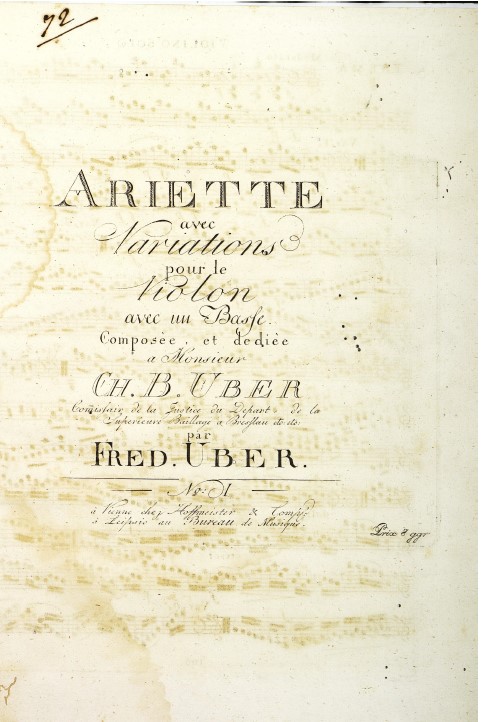 72
ARIETTE
avec
Variations
pour le
Violon
avec un Basse.
Composée, et dediée
a Monsieur
CH. B. UBER
Comissair de la Justice du Depart. de la
Superieure Baillage a Bresslau &c. &c.
par
FRED. UBER.
No. I
à Vienne chez Hoffmeister & Comp.
à Leipsic au Bureau de Musique.
Prix 8 ggr